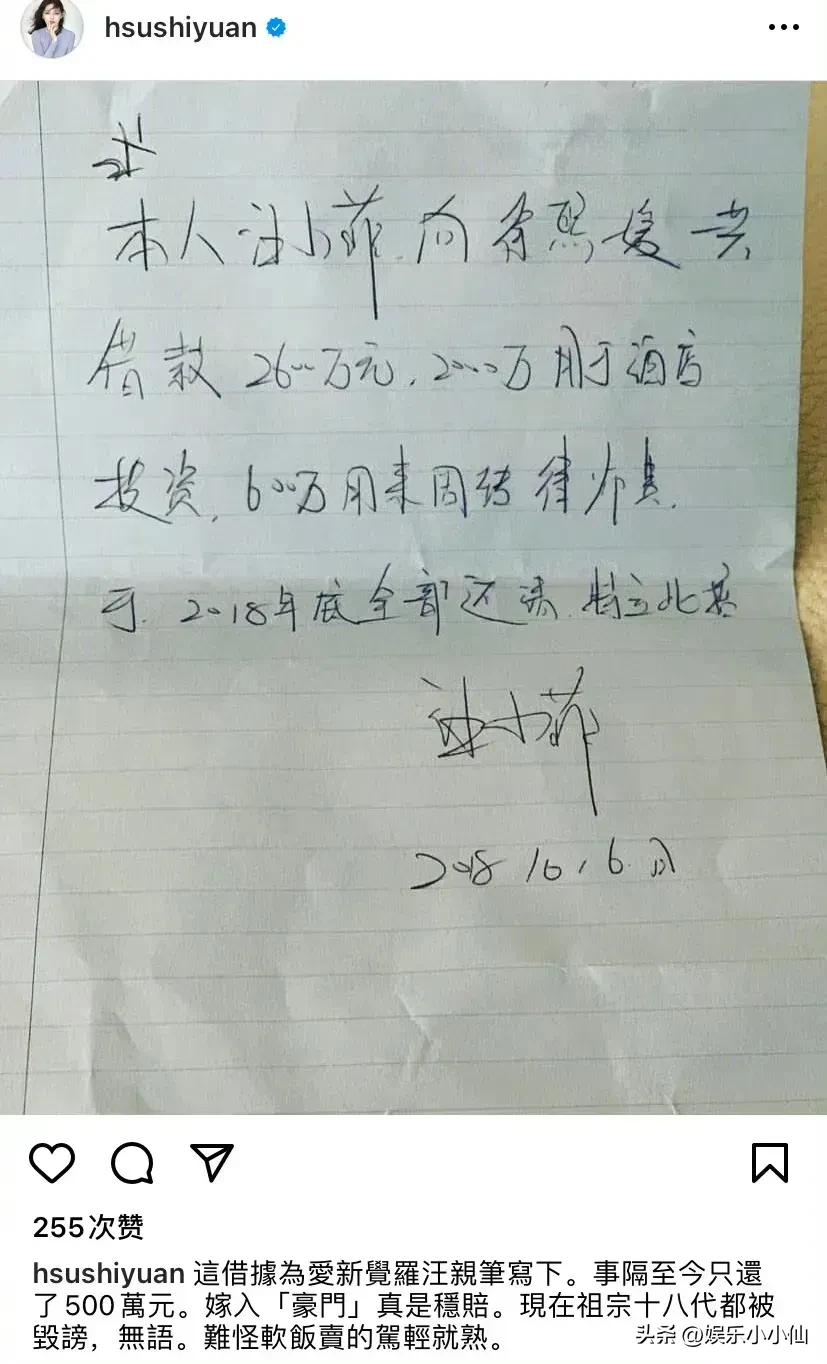 hsushiyuan
本人汪小菲.向徐熙媛共
借款 2600万元.2000万用于酒店
投资.600万用来周转律师费.
于.2018年底全部还清.特立此据
汪小菲
2018 10,6.
255次赞
hsushiyuan 這借據為愛新覺羅汪親筆寫下。事隔至今只還
了500萬元。嫁入「豪門」真是穩賠。現在祖宗十八代都被
毀謗，無語。難怪軟飯賣的駕輕就熟。
头条 @娱乐小小仙